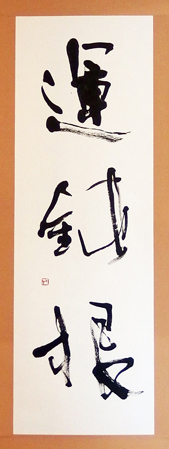 運鈍根